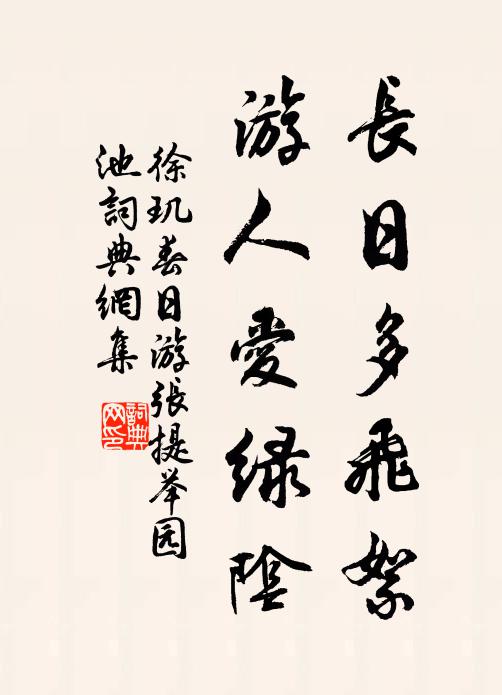 長日多飛絮
游人愛绿陰
徐玑春日游張提举园
池詞典網集
詞典
网印